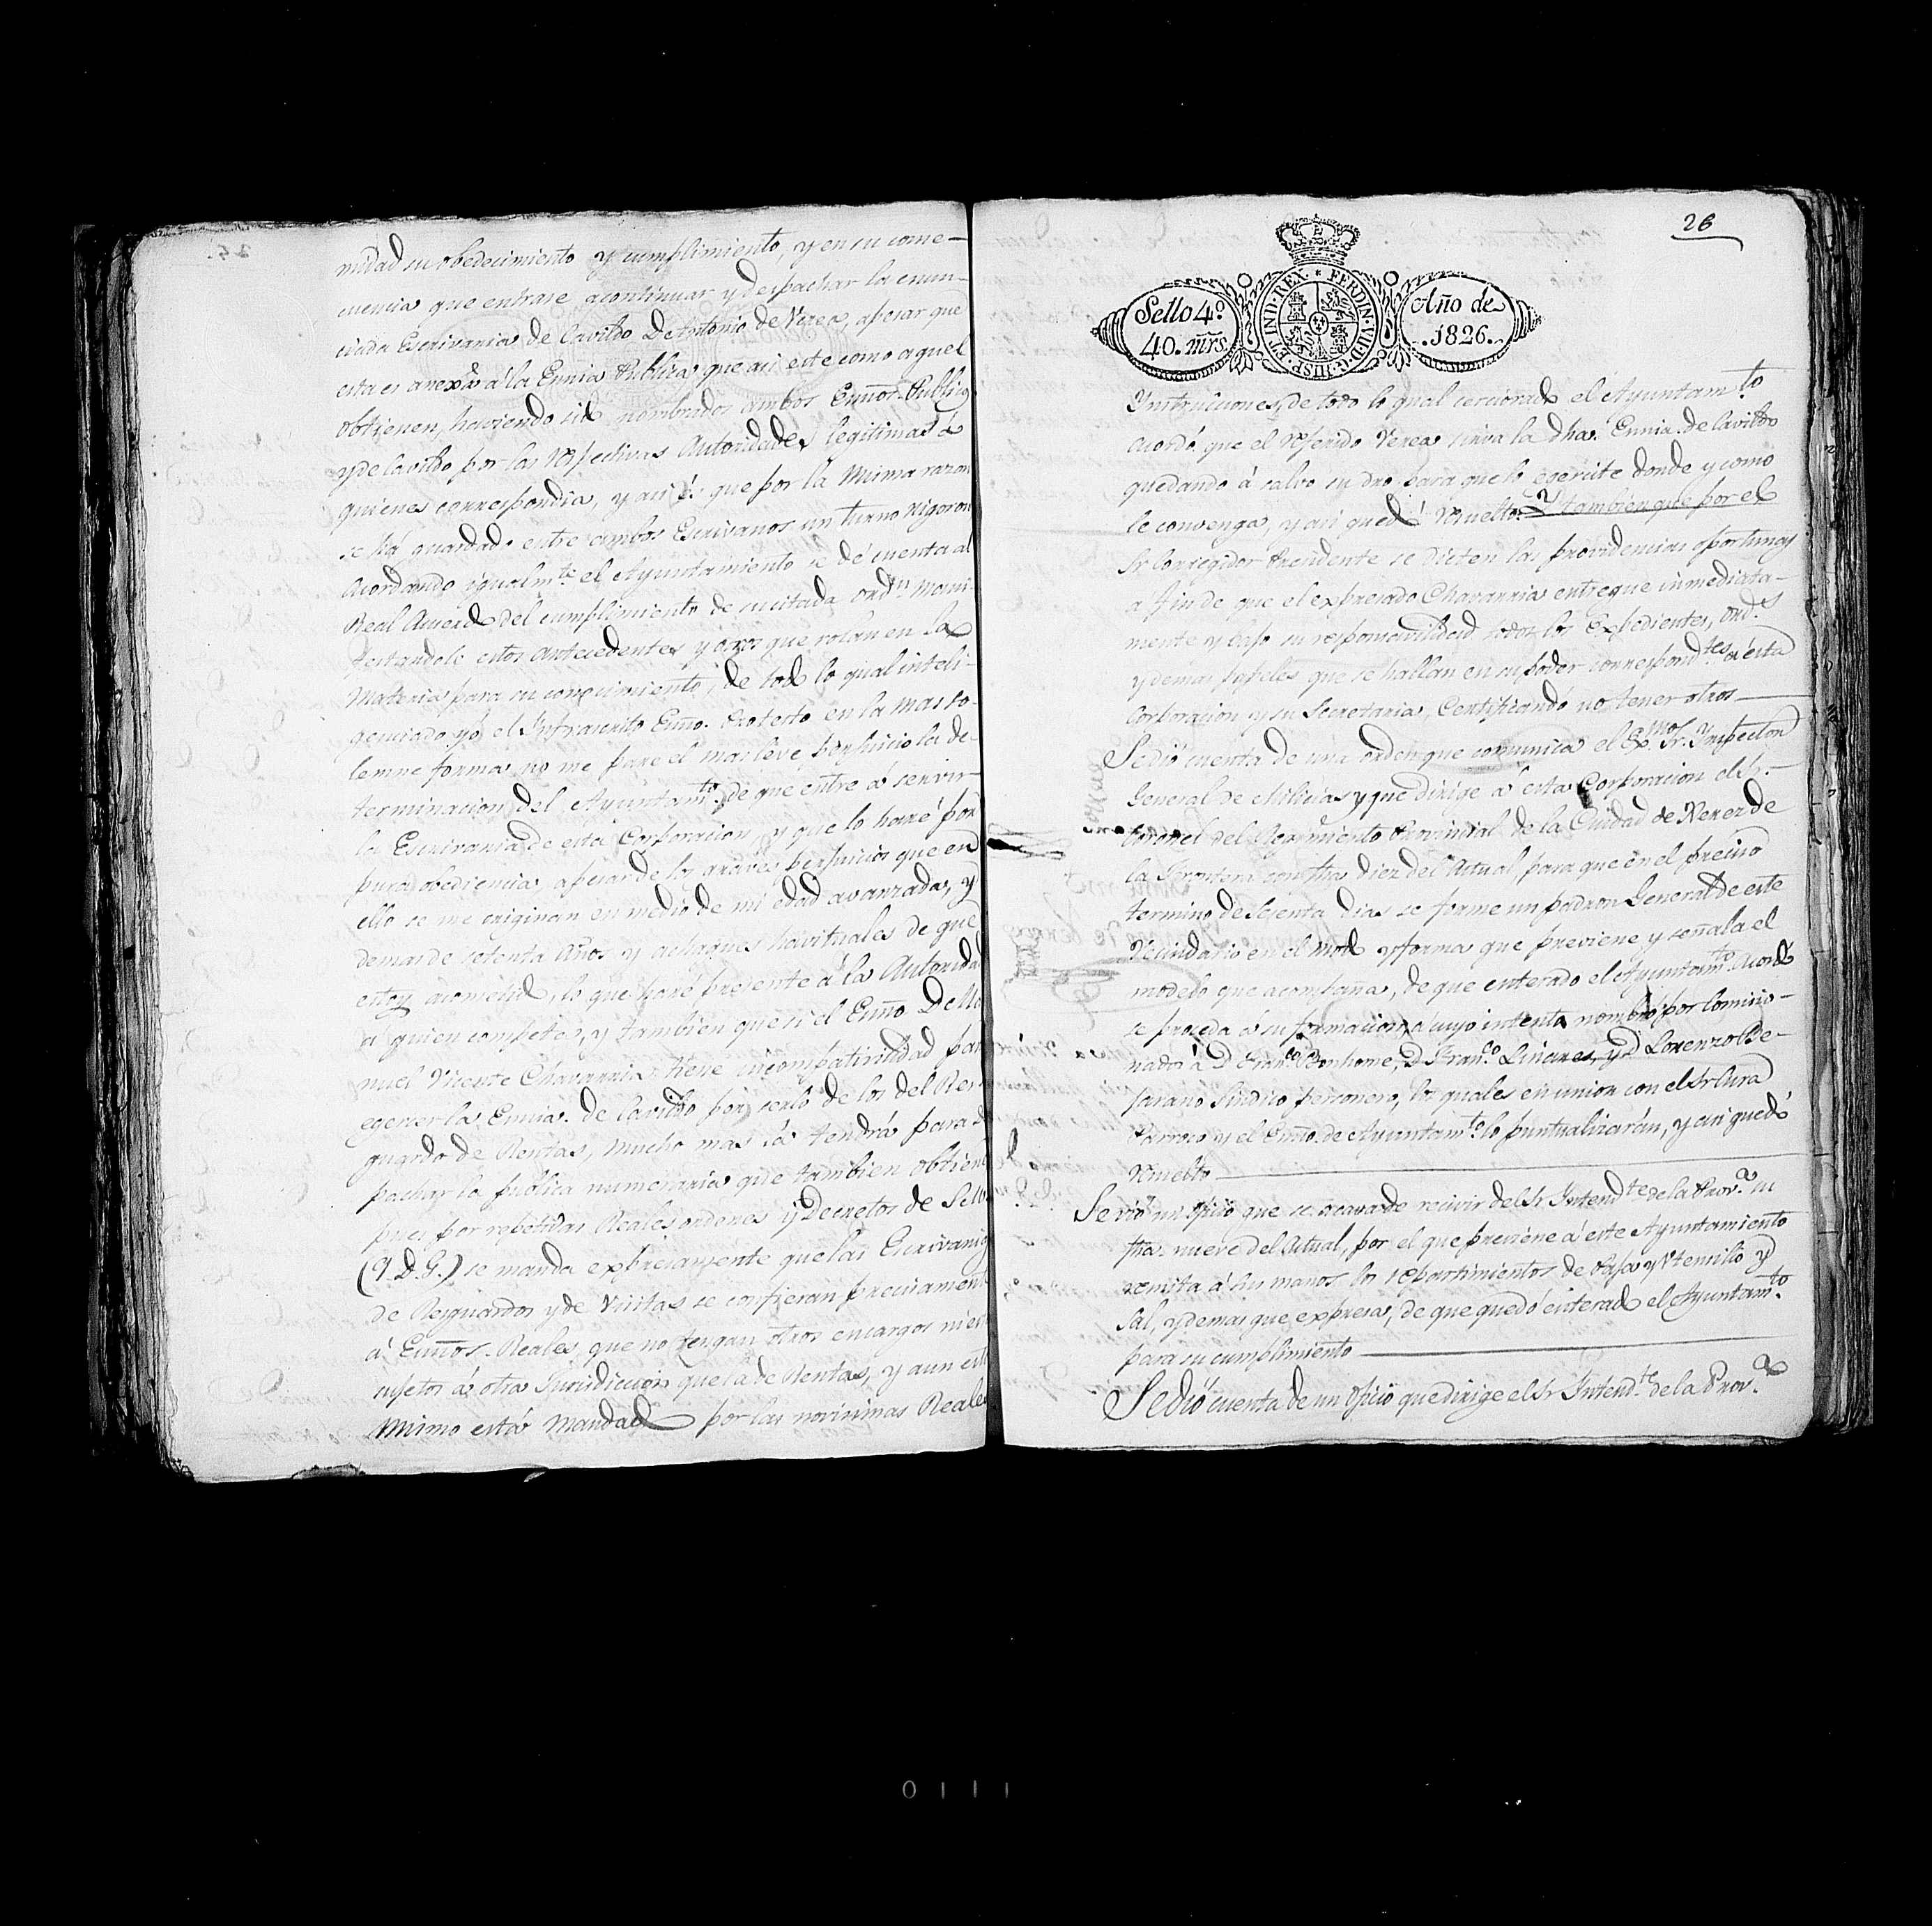 nidad su obedecimiento y cumplimiento, y en su conse-
cuencia que entrase a continuar y despachar la enun-
ciada Escrivania de Cavildo D. Antonio de Verea, apesar que
esta es anexa á la Ennia Publica que asi este como aquel
obtienen, haviendo sido nombrados ambos Ennos. Publico
y de Cavildo por las respectivas Autoridades legitimas á
quienes correspondia, y asi és que por la misma razon
se há guardado entre ambos Escrivanos un turno rigoroso
Acordando igualmte. el Ayuntamiento se dé cuenta al
Real Acuerdo del cumplimiento de sucitada ordn. mani-
festandole estos antecedentes y otros que rolan en la
materia para su conocimiento, de todo lo qual inteli-
genciado yó el Infraescrito Enno. Protesto en la mas so-
lemne forma no me pare el mas leve perjuicio la de-
terminacion del Ayuntamto. de que entre á servir
la Escrivania de esta Corporacion, y que lo haré por
pura obediencia, apesar de los graves perjuicios que en
ello se me originan en medio de mi edad avanzada, y
demas de setenta años y achaques havituales de que
estoy acometido, lo que haré presente á la Autoridad
á quien compete, y tambien que si el Enno D. Ma
nuel Vicente Chavarria tiene incompativilidad para
egercer la Ennia. de Cavildo por serlo de los del Res
guardo de Rentas, mucho mas la tendrá para
pachar la publica numeraria que tambien obtiene
pues por repetidas Reales ordenes y Decretos de S.
(Q.D.G.) se manda expresamente que las Escrivanias
de Resguardos y de Visitas se confieran precisamente
á Ennos. Reales que no tengan otros encargos ni esten
sujetos á otra Jurisdiccion que la de Rentas, y aun esto
mismo está mandado por las novisimas Reales
26
Sello 4º
40. mrs
HISP. ET IND. REX * FERDIN. VII. D. G.
Año de
1826.
Ynstrucciones, de todo lo qual cerciorado el Ayuntamto.
acordó que el referido Verea sirva la dha. Ennia. de Cavildo
quedando á salvo su dro para que lo egercite donde y como
le convenga, y asi quedó resuelto. Y tambien que por el
Sr. Corregidor Presidente se dicten las providencias oportunas
a fin de que el expresado Chavarria entregue inmediata-
mente y bajo su responsavilidad todos los Expedientes, ords.
y demas papeles que se hallan en su poder correspondtes. á esta
Corporacion y su Secretaria, Certificando no tener otros
Se dió cuenta de una orden que comunica el Exmo. Sr. Ynspector
General de Milicias y que dirige á esta Corporacion el Sr.
Coronel del Regimiento Provincial de la Ciudad de Xerez de
la Frontera con fha diez del Actual para que en el preciso
termino de Sesenta dias se forme un padron General de este
Vecindario en el modo y forma que previene y señala el
modelo que acompaña, de que enterado el Ayuntamto. Acordó
se proceda á su formacion á cuyo intento nombró por Comisio-
nados á D. Franco. Bonhome, D. Franco. Linares, y D. Lorenzo Be-
jarano Sindico personero, los quales en union con el Sr Cura
Parroco y el Enno. de Ayuntamto. lo puntualizarán, y asi quedó
resuelto
Se vió un oficio que se acava de recivir del Sr Intendte. de la Prova. su
fha. nueve del Actual, por el que previene á este Ayuntamiento
remita á sus manos los repartimientos de Paja y Utensilio y
Sal, y demas que expresa, de que quedó enterado el Ayuntamto.
para su cumplimiento
Se dió cuenta de un oficio que dirige el Sr Intendte. de la Prova.
0111